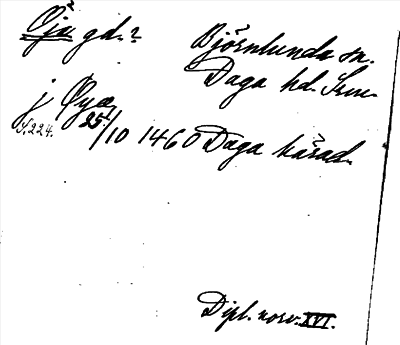 Öja gd.?
Björnlunda sn.
Daga hd. Srm.
j Øyæ
25/10 1460 Daga härad.
S. 224.
Dipl. norv. XVI.